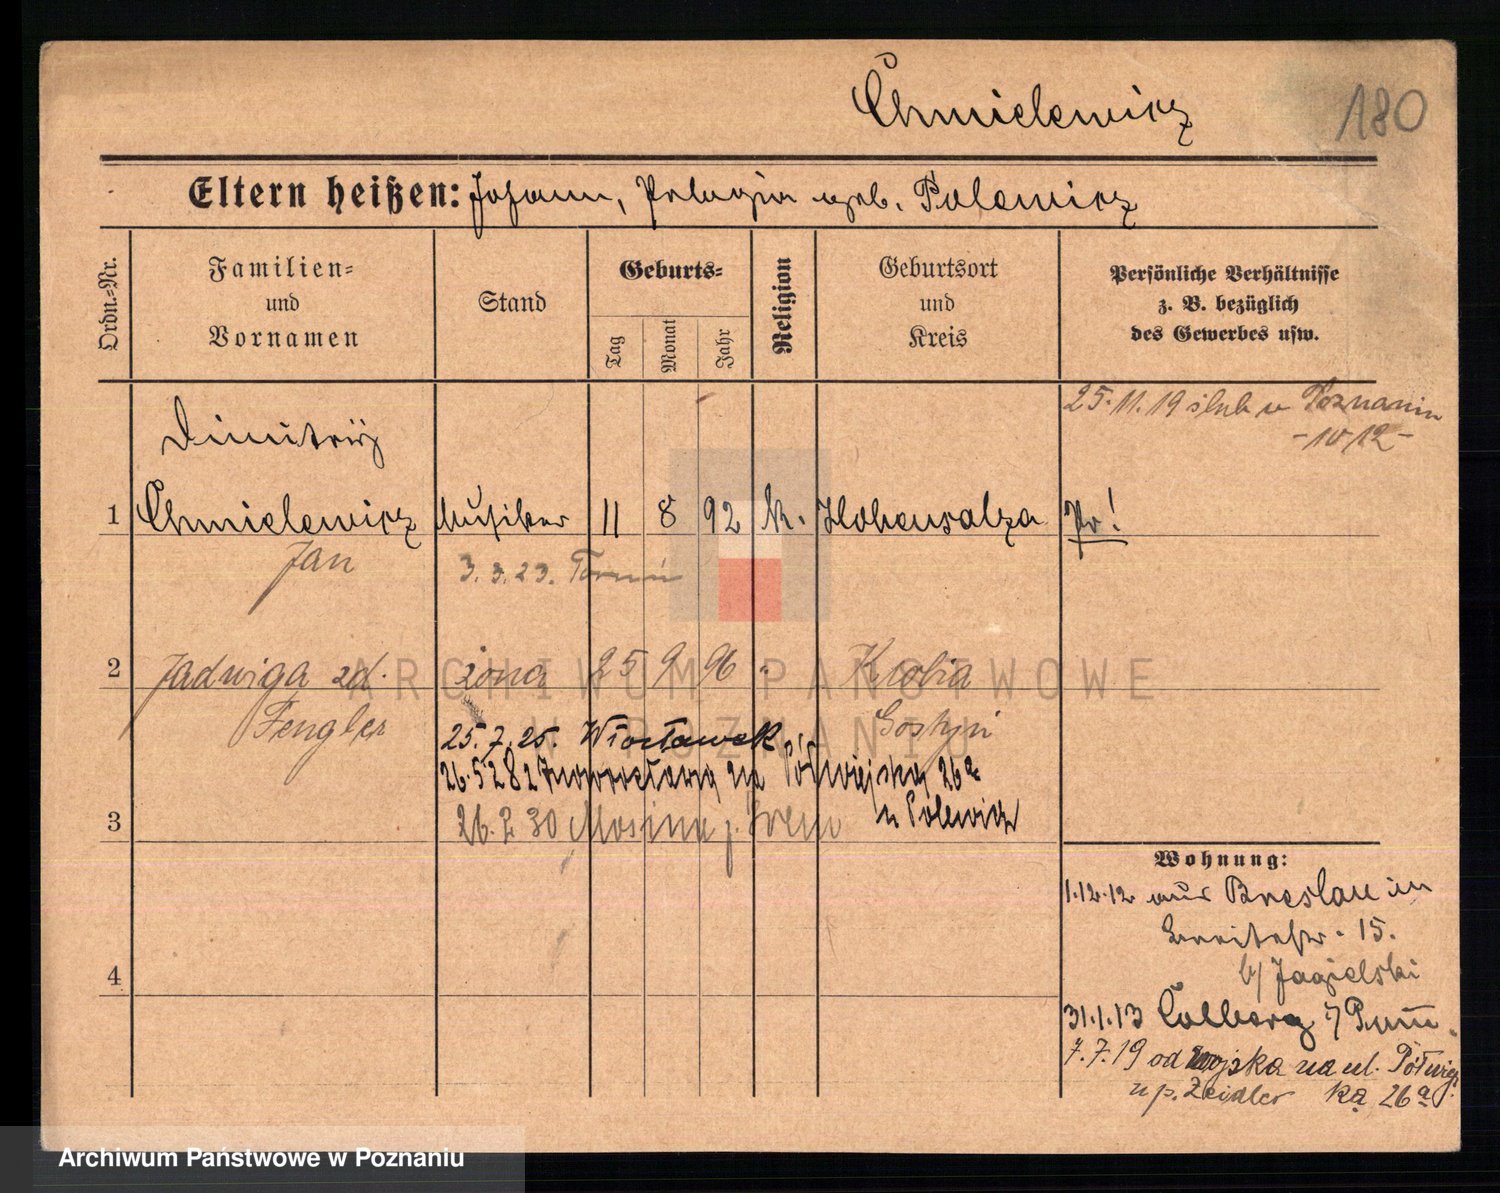 Chmielewicz
180
Eltern heißen: Johann, Pelagia geb. Polewicz
Ordn.=Nr.
Familien=
und
Vornamen
Stand
Geburts=
Tag
Monat
Jahr
Religion
Geburtsort
und
Kreis
Persönliche Verhältnisse
z. B. bezüglich
des Gewerbes usw.
25.11.19 ślub w Poznaniu
Dimitrij
1 Chmielewicz Musiker 11 8 92 k. Hohensalza Pr!
Jan 3.3.23. Toruń
2 Jadwiga zd. żona 25 9 96 " Krobia
Fengler Gostyń
25.7.25. Włocławek
26.5 28 z Inowrocławia na Półwiejską 26a
3 u Polewicz
26.2 30 Mosina p. Śrem
Wohnung:
1.12.12 aus Breslau in
Breitestr. 15.
b/ Jagielski
4
31.1.13 Colberg i/Pom.
7.7.19 od wojska na ul. Półwiej
u p. Zeidler ką 26a
ARCHIWUM PAŃSTWOWE
W POZNANIU
Archiwum Państwowe w Poznaniu